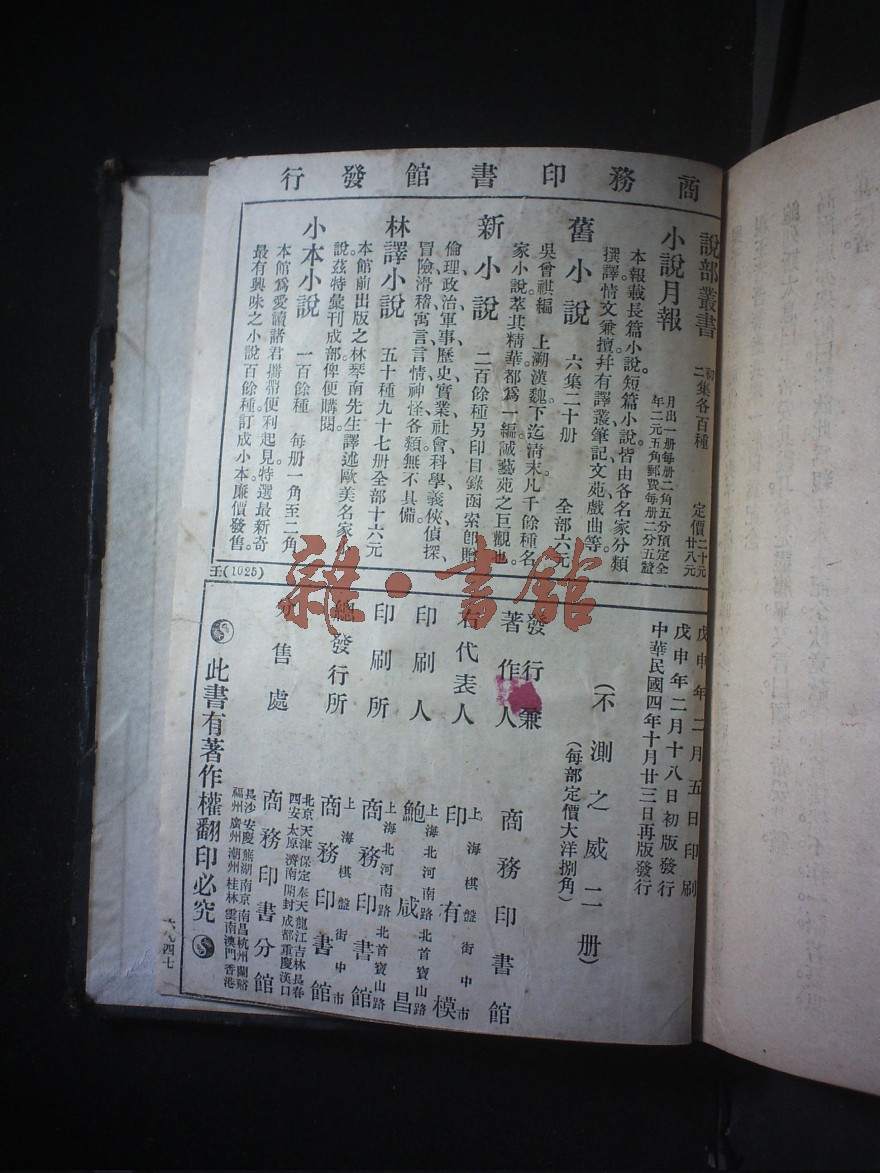 商務印書館發行
說部叢書 初二集各百種 定價二十元 廿八元
小說月報 月出一册每册二角五分預定全年二元五角郵費每册二分五釐
本報載長篇小說。短篇小說。皆由各名家分類
撰譯情文兼擅幷有譯叢筆記文苑戲曲等。
舊小說 六集二十册 全部六元
吳曾祺編 上溯漢魏下迄淸末凡千餘種名
家小說萃其精華都爲一編誠藝苑之巨觀也。
新小說 二百餘種另印目錄函索卽贈
倫理、政治、軍事、歷史、實業、社會、科學、義俠、偵探、
冒險、滑稽、寓言、言情、神怪各類無不具備。
林譯小說 五十種九十七册全部十六元
本館前出版之林琴南先生譯述歐美名家小
說茲特彙刊成部俾便購閱。
小本小說 一百餘種 每册一角至二角
本館爲愛讀諸君攜帶便利起見。特選最新奇
最有興味之小說百餘種訂成小本廉價發售。
王(1025)
戊申年二月五日印刷
戊申年二月十八日初版發行
中華民國四年十月廿三日再版發行
(不測之威二册)
(每部定價大洋捌角)
發行兼著作人 商務印書館
右代表人 上海棋盤街中市 印有模
印刷人 上海北河南路北首寶山路 鮑咸昌
印刷所 上海北河南路北首寶山路 商務印書館
總發行所 上海棋盤街中市 商務印書館
分售處 北京天津保定奉天龍江吉林長春
西安太原濟南開封成都重慶漢口
商務印書分館
長沙安慶蕪湖南京南昌杭州蘭谿
福州廣州潮州桂林雲南澳門香港
此書有著作權翻印必究
六九四七
雜·書館